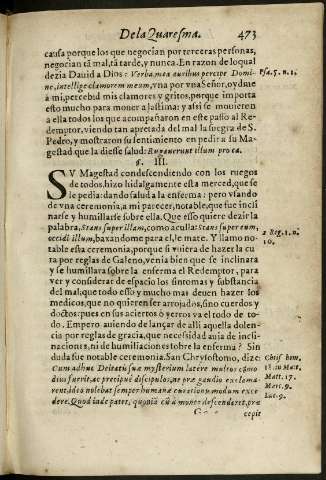 De la Quaresma. 473
causa porque los que negocian por terceras personas,
negocian tã mal, tã tarde, y nunca. En razon de lo qual
dezia Dauid a Dios: Verba mea auribus percipe Domi-
ne, intellige clamorem meum, vna por vna Señor, oydme
a mi, percebid mis clamores y gritos, porque importa
esto mucho para moner a lastima: y assi se mouieren
a ella todos los que acompañaron en este passo al Re-
demptor, viendo tan apretada del mal la suegra de S.
Pedro, y mostraron su sentimiento en pedir a su Ma-
gestad que la diesse salud: Rogauerunt illum pro ea.
Psa. 5. n. 1.
§. III.
SV Magestad condescendiendo con los ruegos
de todos, hizo hidalgamente esta merced, que se
le pedia: dando salud a la enferma: pero vsando
de vna ceremonia, a mi parecer, notable, que fue incli
narse y humillarse sobre ella. Que esso quiere dezir la
palabra, Stans super illam, como aculla: Stans super eum
occidi illum, baxandome para el, le mate. Y llamo no-
table esta ceremonia, porque si viniera de hazer la cu
ra por reglas de Galeno, venia bien que se inclinara
y se humillara sobre la enferma el Redemptor, para
ver y considerar de espacio los sintomas y substancia
del mal, que todo esso y mucho mas deuen hazer los
medicos, que no quieren ser arrojados, sino cuerdos y
doctos: pues en sus aciertos ò yerros va el todo de to-
do. Empero auiendo de lançar de alli aquella dolen-
cia por reglas de gracia, que necessidad auia de incli-
naciones, ni de humiliaciones sobre la enferma? Sin
duda fue notable ceremonia. San Chrysostomo, dize:
Cum adhuc Deitatis suæ mysterium latere multos cómo
dius fuerit, ac præcipuè discipulos, ne præ gaudio exclama-
rent, ideò nolebat semper humanæ curationis modum exce
dere. Quod inde patet, quoniã cũ à monte descenderet, præ
2 Reg. 1. n.
10.
Chrif. hom.
18. in Mat.
Matt. 17.
Marc. 9.
Luc. 9.
cepit